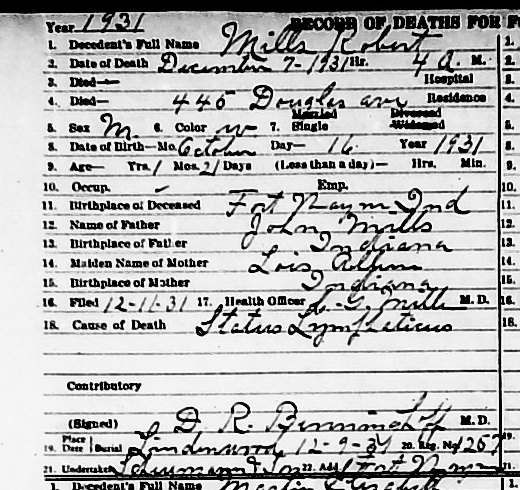 Year 1931 RECORD OF DEATHS FOR
1. Decedent's Full Name Mills Robert
2. Date of Death December 7-1931 Hr. 4 A. M.
3. Died— Hospital
4. Died— 445 Douglas ave Residence
Married Divorced
5. Sex M. 6. Color w 7. Single Widowed
8. Date of Birth—Mo. October Day— 16 Year 1931
9. Age— Yrs. 1 Mos. 21 Days (Less than a day)— Hrs. Min.
10. Occup. Emp.
11. Birthplace of Deceased Fort Wayne Ind
12. Name of Father John Mills
13. Birthplace of Father Indiana
14. Maiden Name of Mother Lois
15. Birthplace of Mother Indiana
16. Filed 12-11-31 17. Health Officer M. D.
18. Cause of Death Status Lymphaticus
Contributory
(Signed) D. R. M. D.
19. Place Date Burial Lindenwood 12-9-31 20. Reg. No. 1257
21. Undertaker 22. Add. Fort Wayne
1. Decedent's Full Name